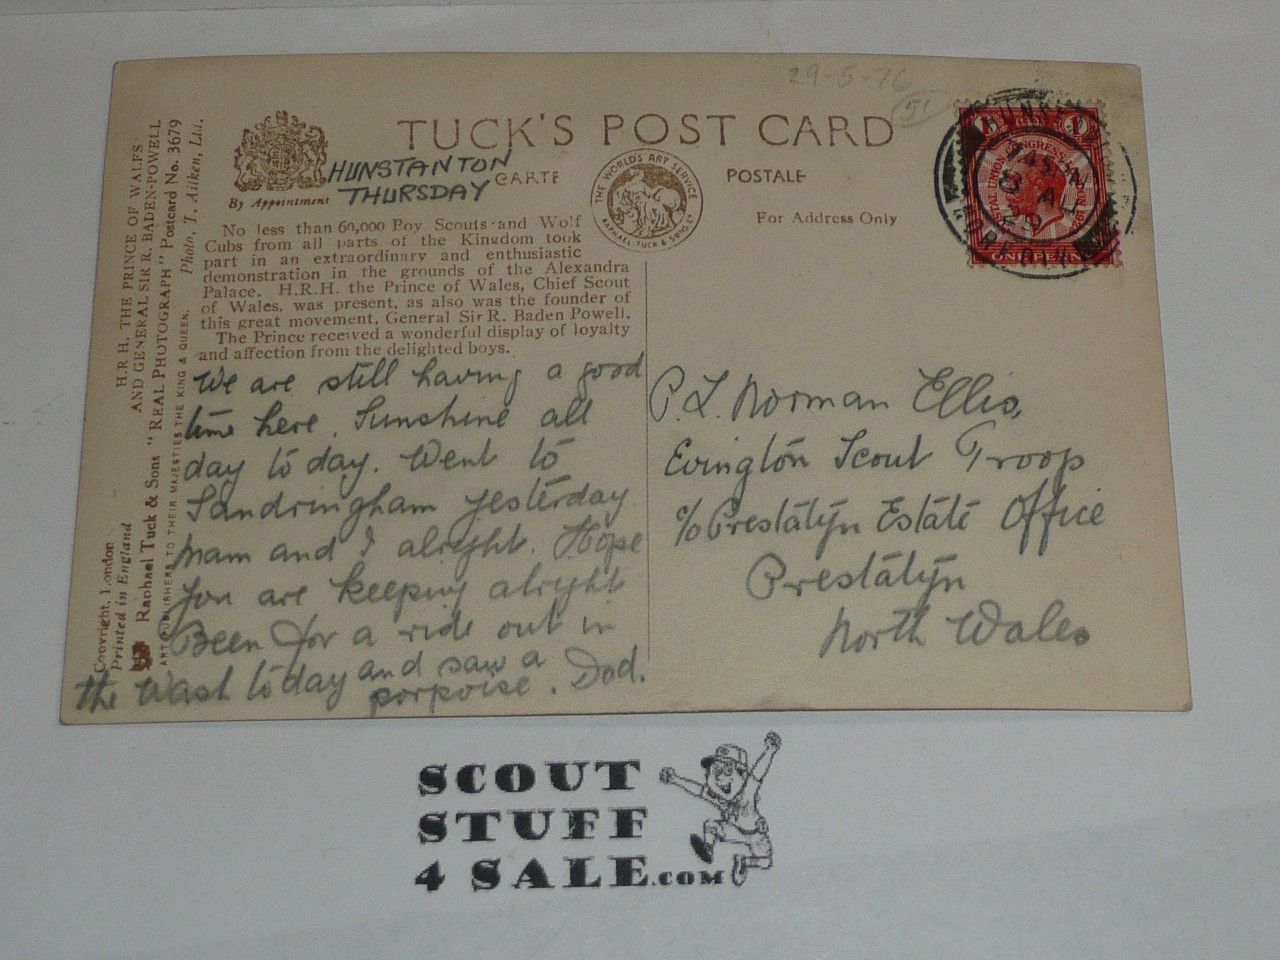 29-5-76
51
TUCK'S POST CARD
HUNSTANTON
THURSDAY
CARTE
POSTALE
By Appointment
THE WORLD'S ART SERVICE
RAPHAEL TUCK & SONS Ld
For Address Only
No less than 60,000 Boy Scouts and Wolf
Cubs from all parts of the Kingdom took
part in an extraordinary and enthusiastic
demonstration in the grounds of the Alexandra
Palace. H.R.H. the Prince of Wales, Chief Scout
of Wales, was present, as also was the founder of
this great movement, General Sir R. Baden Powell.
The Prince received a wonderful display of loyalty
and affection from the delighted boys.
H.R.H. THE PRINCE OF WALES
AND GENERAL SIR R. BADEN-POWELL
Raphael Tuck & Sons "REAL PHOTOGRAPH" Postcard No. 3679
ART PUBLISHERS TO THEIR MAJESTIES THE KING & QUEEN.
Photo, T. Aitken, Ltd.
Copyright, London
Printed in England
We are still having a good
time here. Sunshine all
day to day. Went to
Sandringham yesterday
Mam and I alright. Hope
you are keeping alright
Been for a ride out in
the Wash to day and saw a
porpoise. Dad.
P.L. Norman Ellis,
Evington Scout Troop
c/o Prestatyn Estate Office
Prestatyn
North Wales
POSTAL UNION CONGRESS
ONE PENNY
SCOUT
STUFF
4 SALE.COM